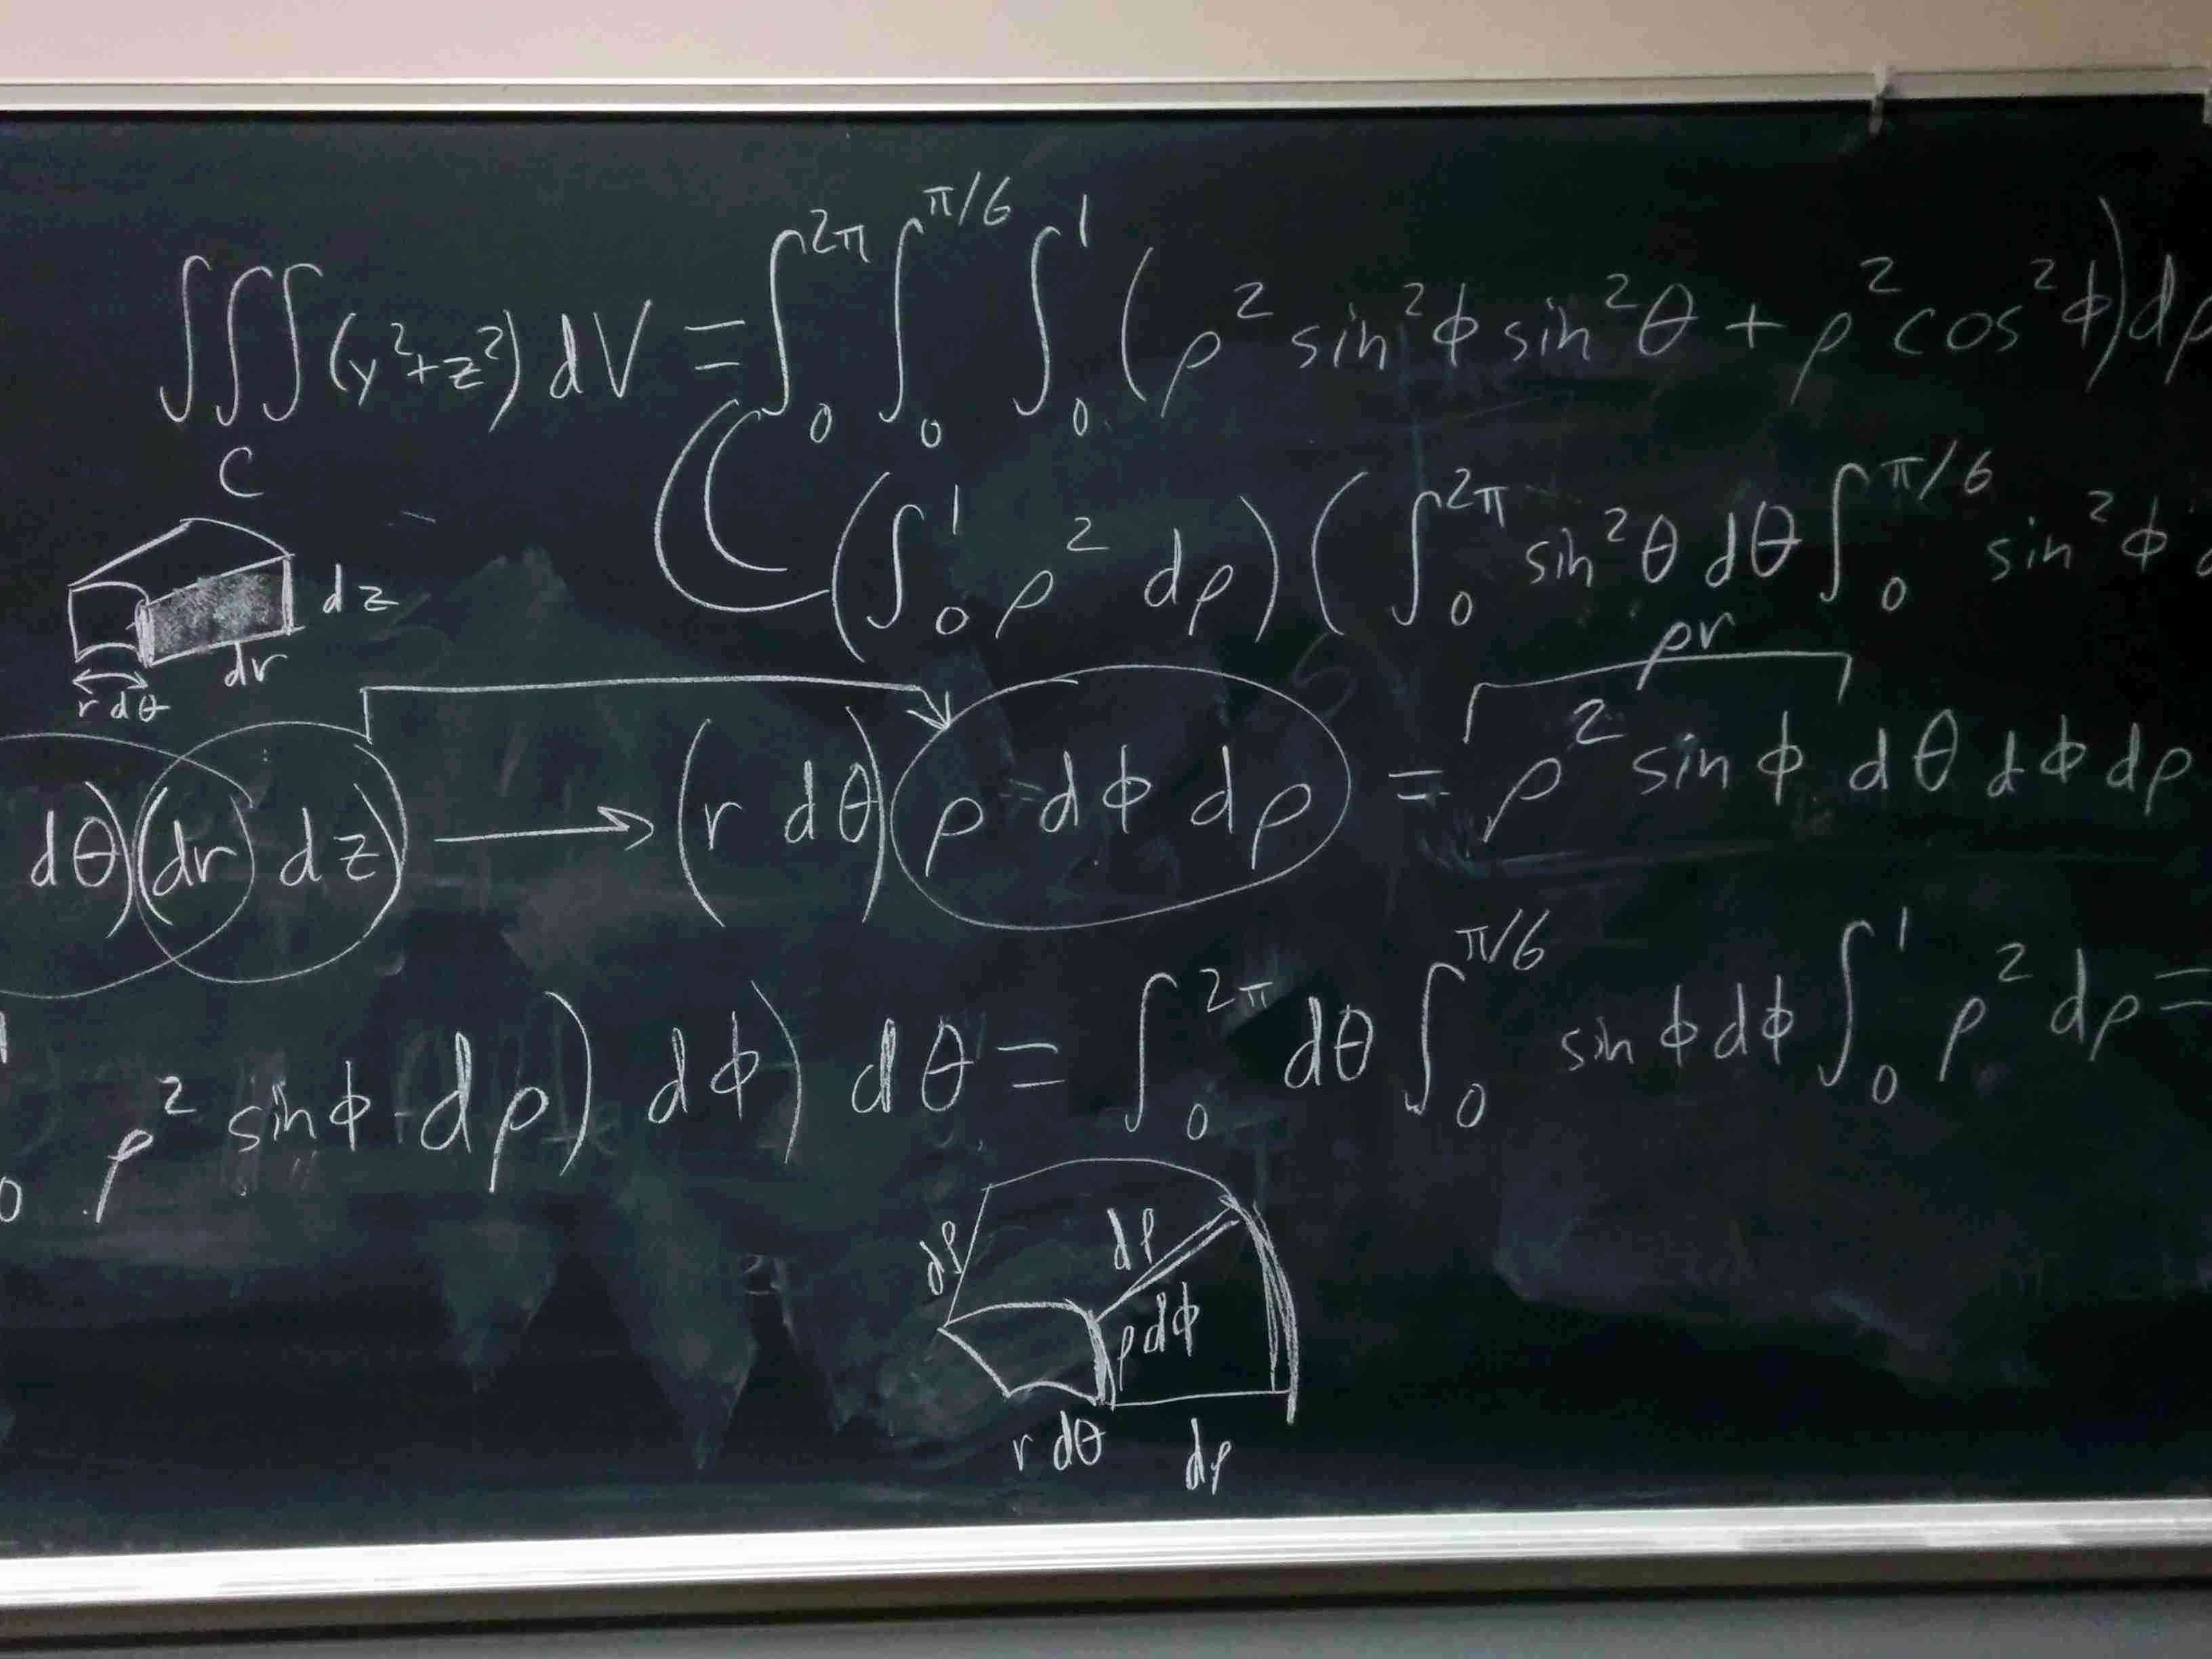 ∭_C (y²+z²) dV = ∫₀^{2π} ∫₀^{π/6} ∫₀^1 (ρ² sin²φ sin²θ + ρ² cos²φ) dρ
(∫₀^1 ρ² dρ) (∫₀^{2π} sin²θ dθ ∫₀^{π/6} sin²φ
dz
dr
r dθ
ρr
dθ)(dr dz) ⟶ (r dθ) ρ dφ dρ = ρ² sin φ dθ dφ dρ
0 ρ² sinφ dρ) dφ) dθ = ∫₀^{2π} dθ ∫₀^{π/6} sin φ dφ ∫₀^1 ρ² dρ =
dρ
dρ
ρ dφ
r dθ
dρ